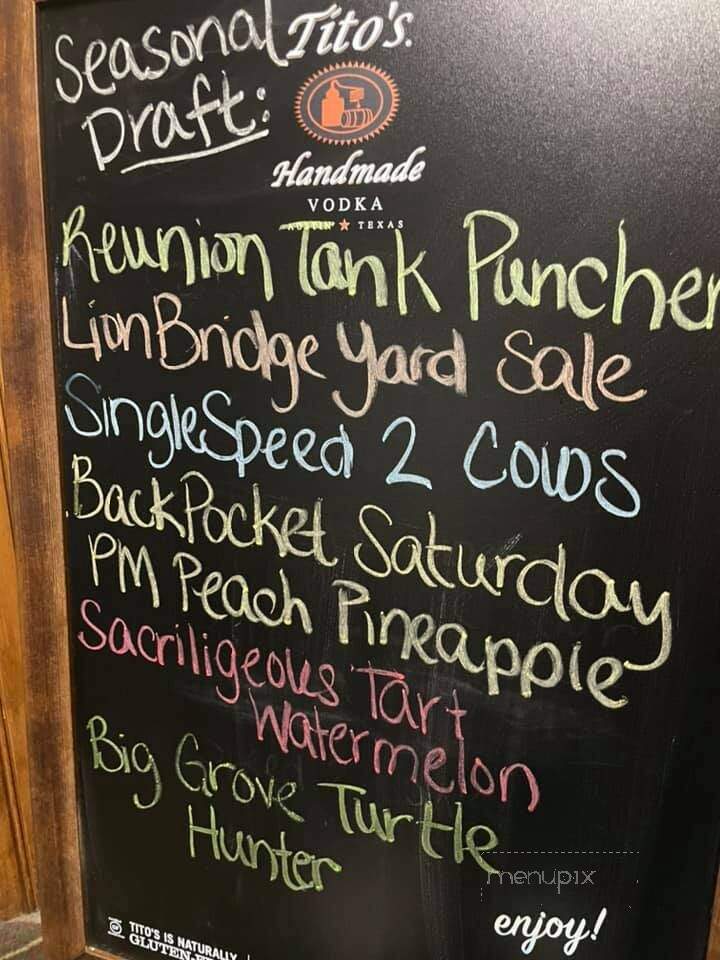 Seasonal
Draft:
Tito's
Handmade
VODKA
AUSTIN ★ TEXAS
Reunion Tank Puncher
LionBridge Yard Sale
SingleSpeed 2 Cows
BackPocket Saturday
PM Peach Pineapple
Sacriligeous Tart
Watermelon
Big Grove Turtle
Hunter
menupix
enjoy!
TITO'S IS NATURALLY